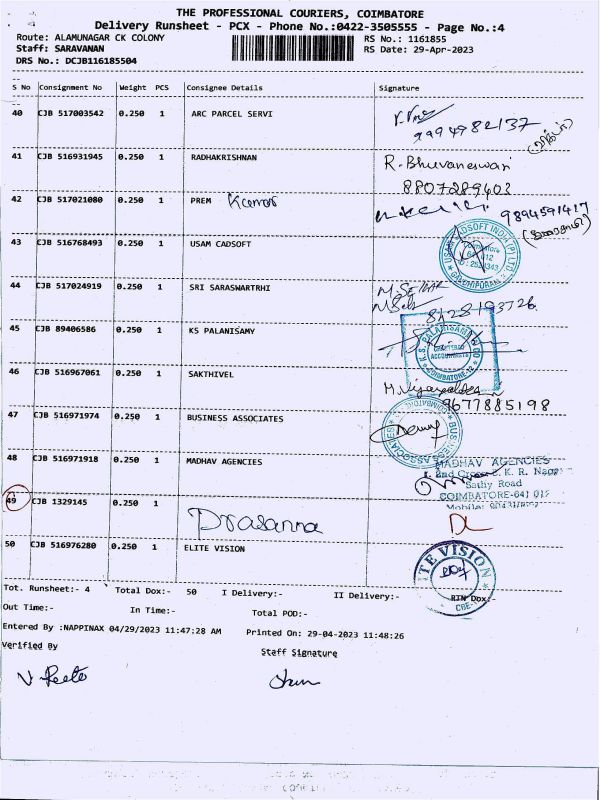 THE PROFESSIONAL COURIERS, COIMBATORE
Delivery Runsheet - PCX - Phone No.:0422-3505555 - Page No.:4
Route: ALAMUNAGAR CK COLONY RS No.: 1161855
Staff: SARAVANAN RS Date: 29-Apr-2023
DRS No.: DCJB116185504
S No Consignment No Weight PCS Consignee Details Signature
40 CJB 517003542 0.250 1 ARC PARCEL SERVI
9994982137
41 CJB 516931945 0.250 1 RADHAKRISHNAN R. Bhuvaneswari
8807289603
42 CJB 517021080 0.250 1 PREM Kumar
9894591417
43 CJB 516768493 0.250 1 USAM CADSOFT
USAM CADSOFT INDIA (P) LTD.
44 CJB 517024919 0.250 1 SRI SARASWARTRHI
8128193726
45 CJB 89406586 0.250 1 KS PALANISAMY
CHARTERED
ACCOUNTANTS
COIMBATORE-12
46 CJB 516967061 0.250 1 SAKTHIVEL
9677885198
47 CJB 516971974 0.250 1 BUSINESS ASSOCIATES
BUSINESS ASSOCIATES
48 CJB 516971918 0.250 1 MADHAV AGENCIES
MADHAV AGENCIES
2nd Cross K. R. Nagar
Sathy Road
COIMBATORE-641 012
Mobile:
49 CJB 1329145 0.250 1 Prasanna
50 CJB 516976280 0.250 1 ELITE VISION
ITE VISION
CBE
Tot. Runsheet:- 4 Total Dox:- 50 I Delivery:- II Delivery:- RTN Dox:-
Out Time:- In Time:- Total POD:-
Entered By :NAPPINAX 04/29/2023 11:47:28 AM Printed On: 29-04-2023 11:48:26
Verified By Staff Signature